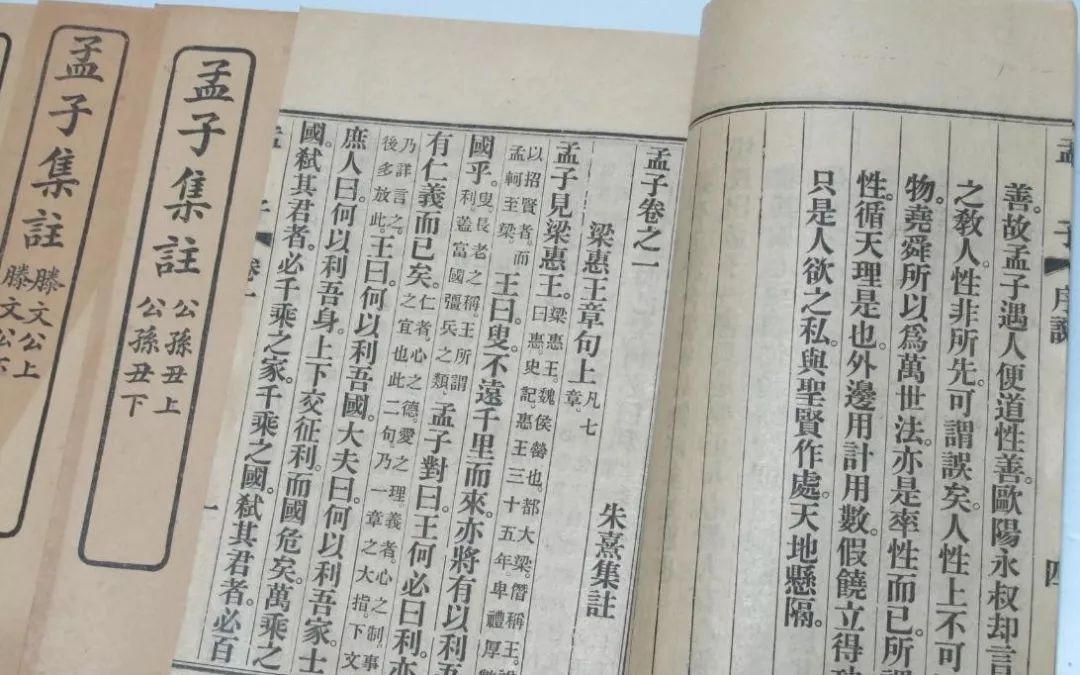 孟子序說 四
善。故孟子遇人便道性善。歐陽永叔却言
之敎人。性非所先。可謂誤矣。人性上不可
物。堯舜所以爲萬世法。亦是率性而已。所謂
性。循天理是也。外邊用計用數。假饒立得功
只是人欲之私。與聖賢作處。天地懸隔。
孟子卷之一
朱熹集註
梁惠王章句上
凡七
章。
孟子見梁惠王。
梁惠王。魏侯罃也。都大梁。僭稱王。諡
曰惠。史記。惠王三十五年。卑禮厚幣
以招賢者。而
孟軻至梁。
王曰。叟不遠千里而來。亦將有以利吾
國乎。
叟。長老之稱。王所謂
利。蓋富國彊兵之類。
孟子對曰。王何必曰利。亦
有仁義而已矣。
仁者。心之德。愛之理。義者。心之制。事
之宜也。此二句。乃一章之大指。下文
乃詳言之。
後多放此。
王曰。何以利吾國。大夫曰。何以利吾家。士
庶人曰。何以利吾身。上下交征利。而國危矣。萬乘之
國。弑其君者。必千乘之家。千乘之國。弑其君者。必百
孟子 卷一 一
孟子集註
公孫丑上
公孫丑下
孟子集註
滕文公上
滕文公下